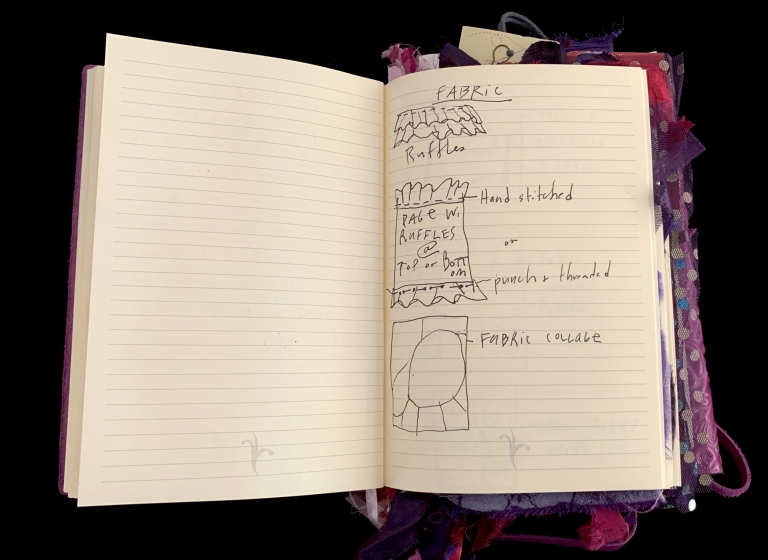 FABRIC
Ruffles
Hand stitched
PAGE W.
RUFFLES
@
or
TOP or BOTT
OM
punch + threaded
FABRIC COLLAGE